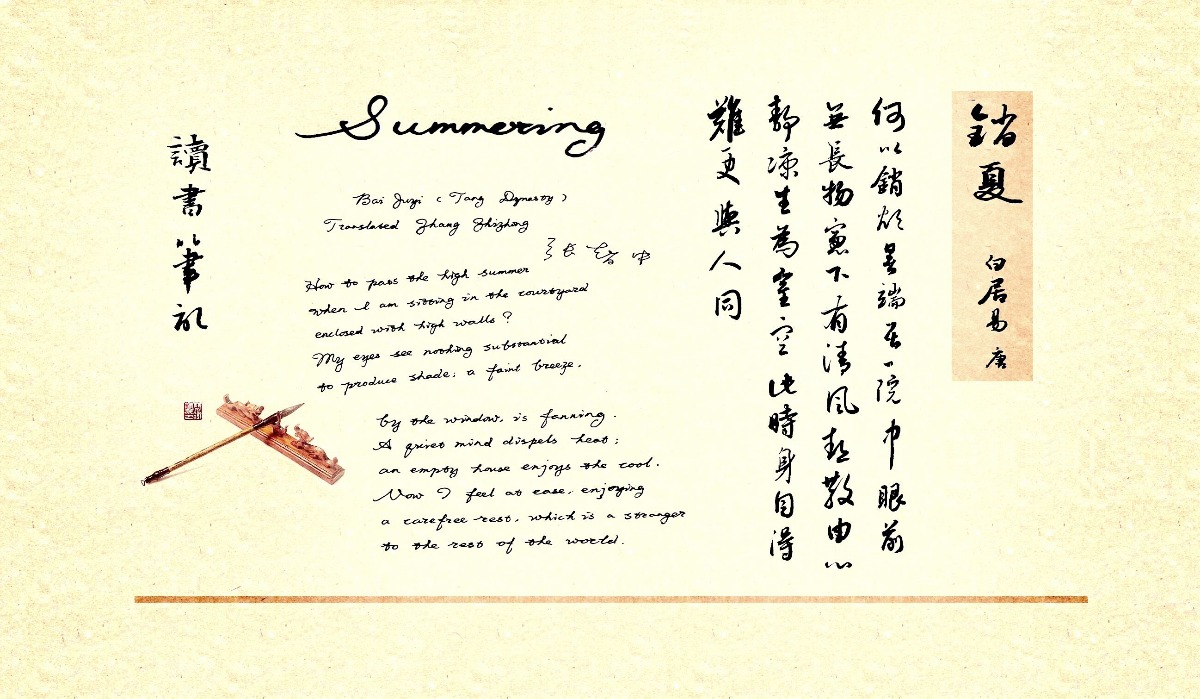 銷夏
白居易 唐
何以銷煩暑端居一院中眼前
無長物窓下有清風熱散由心
靜凉生為室空此時身自得
難更與人同
Summering
Bai Juyi (Tang Dynasty)
Translated Zhang Zhizhong
張智中
How to pass the high summer
when I am sitting in the courtyard
enclosed with high walls?
My eyes see nothing substantial
to produce shade; a faint breeze,
by the window, is fanning.
A quiet mind dispels heat;
an empty house enjoys the cool.
Now I feel at ease, enjoying
a carefree rest, which is a stranger
to the rest of the world.
讀書筆記